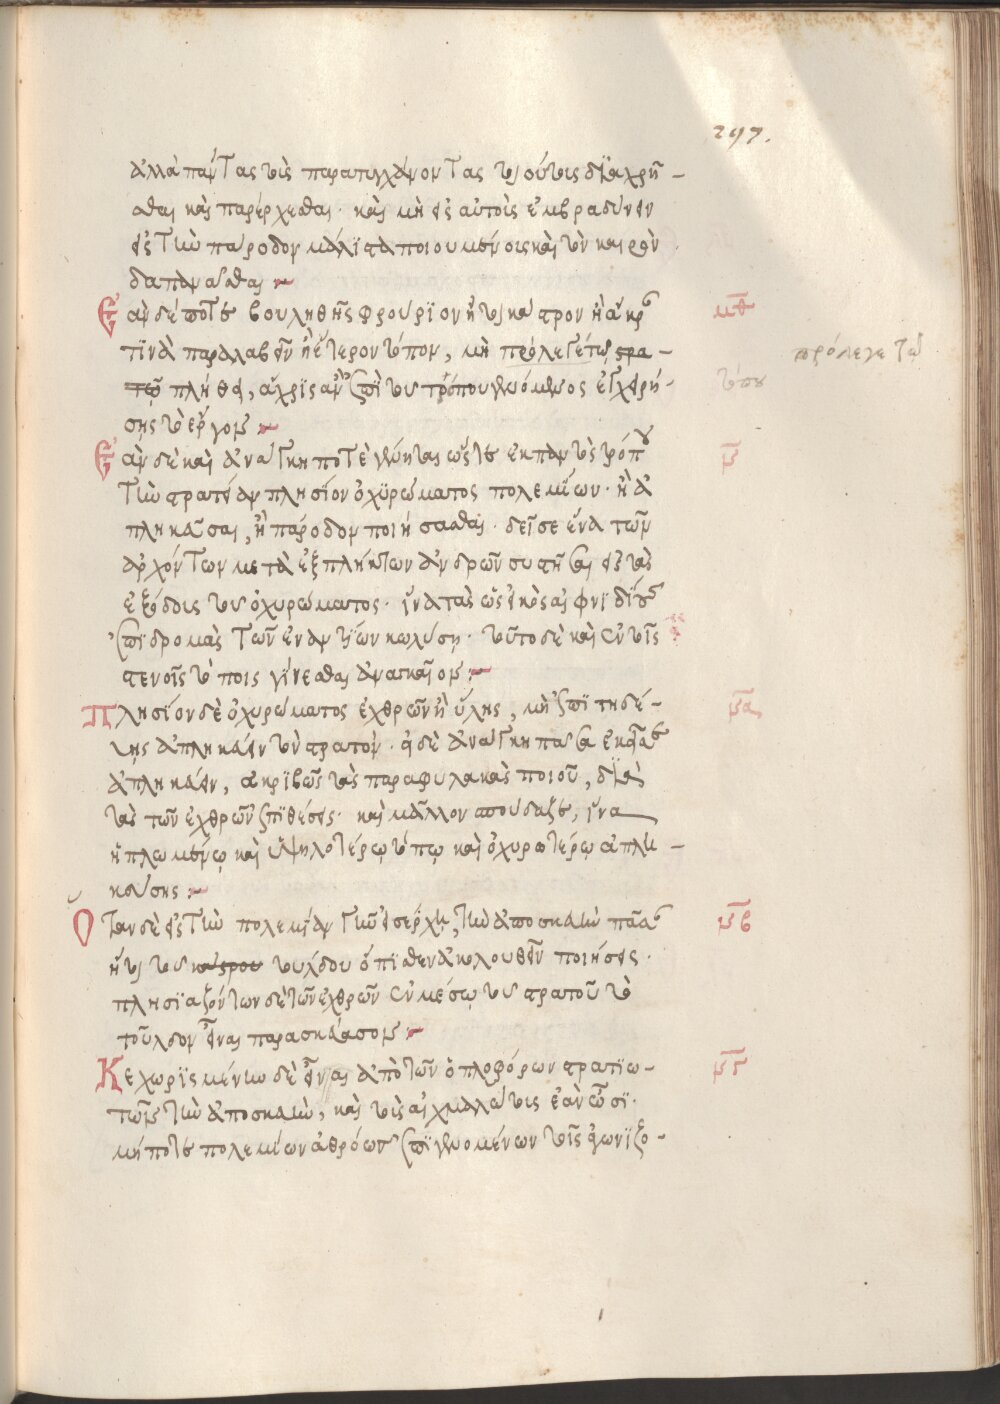 297.
ἀλλὰ πάντας τοὺς παρατυγχάνοντας τούτοις διαχρῆ-
σθαι καὶ παρέρχεσθαι· καὶ μὴ εἰς αὐτοὺς ἐμβραδύνειν
εἰς τὴν πάροδον μάλιστα ποιουμένοις καὶ τὸν καιρὸν
δαπανᾶσθαι
Ἐὰν δέ ποτε βουληθῇς φρούριον ἤτοι κάστρον ἢ ἄκρ
τινὰ παραλαβεῖν ἢ ἕτερον τόπον, μὴ πρόλεγε τῷ στρα-
τῷ πλήθει, ἄχρις ἂν ἐπὶ τοῦ τρόπου γενόμενος ἐγχειρή-
σῃς τὸ ἔργον
Ἐὰν δὲ καὶ ἀνάγκη ποτὲ γένηται ὥστε ἐκ παντὸς τρόπου
τὴν στρατείαν πλησίον ὀχυρώματος πολεμίων· ἢ ἀ
πληκεῦσαι, ἢ πάροδον ποιήσασθαι· δεῖ σε ἕνα τῶν
ἀρχόντων μετὰ ἐξπλήκτων ἀνδρῶν συστῆσαι εἰς τὰς
ἐξόδους τοῦ ὀχυρώματος· ἵνα τὰς ὡς εἰκὸς αἰφνιδίους
ἐπιδρομὰς τῶν ἐναντίων κωλύσῃ· τοῦτο δὲ καὶ ἐν τοῖς
στενοῖς τόποις γίνεσθαι ἀναγκαῖον
Πλησίον δὲ ὀχυρώματος ἐχθρῶν ἢ ὕλης, μὴ ἐπιτηδέ-
λης ἀπληκεύειν τὸν στρατόν· εἰ δὲ ἀνάγκη πᾶσα ἐκεῖσε
ἀπληκεύειν, ἀκριβῶς τὰς παραφυλακὰς ποιοῦ, διὰ
τὰς τῶν ἐχθρῶν ἐπιθέσεις· καὶ μᾶλλον σπούδαζε, ἵνα
ἡπλωμένῳ καὶ ὑψηλοτέρῳ τόπῳ καὶ ὀχυρωτέρῳ ἀπλη-
κεύσῃς
Ὅταν δὲ εἰς τὴν πολεμίαν γῆν εἰσέρχῃ, τὴν ἀποσκευὴν πᾶσαν
ἤτοι τοῦ κάστρου τούλδου ὄπισθεν ἀκολουθεῖν ποιήσεις·
πλησιαζόντων δὲ τῶν ἐχθρῶν ἐν μέσῳ τοῦ στρατοῦ τὸ
τοῦλδον εἶναι παρασκεύασον
Κεχωρισμένην δὲ εἶναι ἀπὸ τῶν ὁπλοφόρων στρατιω-
τῶν τὴν ἀποσκευὴν, καὶ τοὺς αἰχμαλώτους ἐὰν ὦσι·
μήποτε πολεμίων ἀθρόων ἐπιγενομένων τοῖς ἀγωνιζο-
μθ
πρόλεγε τῷ
τόπου
μ
μα
μβ
μγ